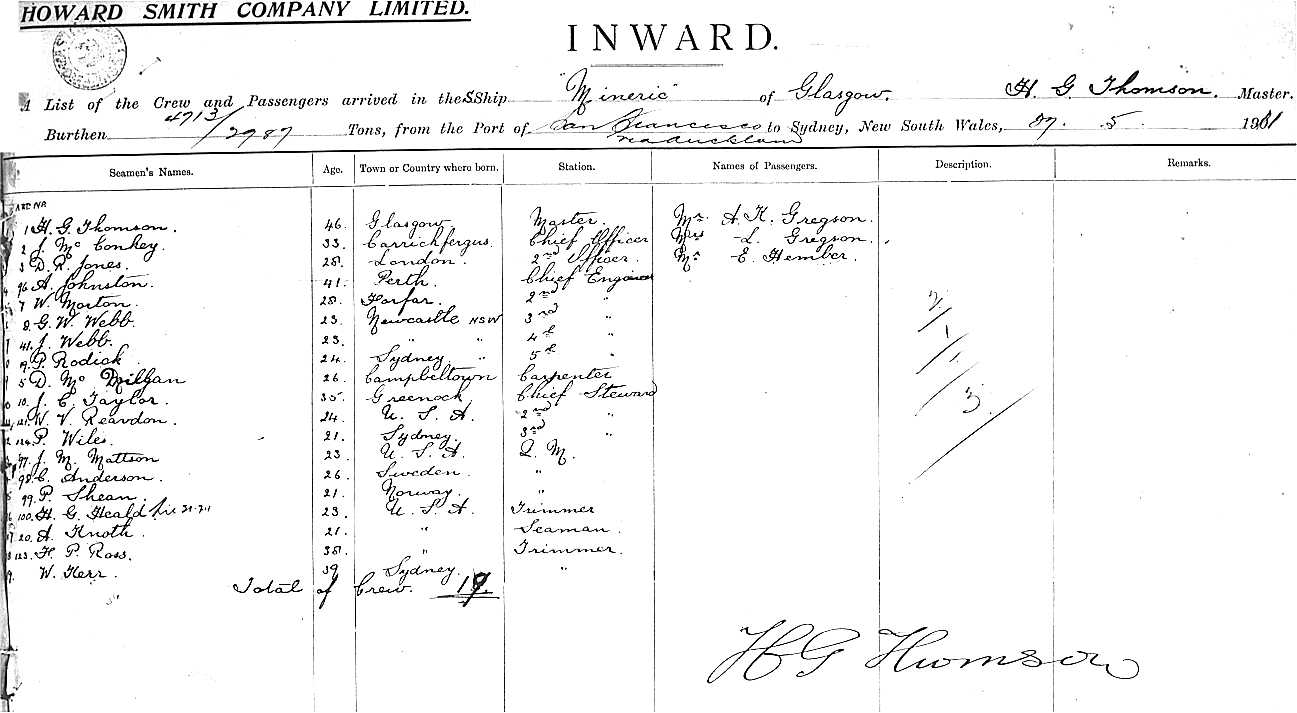 HOWARD SMITH COMPANY LIMITED.
INWARD.
A List of the Crew and Passengers arrived in the S.Ship "Mineric" of Glasgow. H. G Thomson. Master.
Burthen 4713/2987 Tons, from the Port of San Francisco via Auckland to Sydney, New South Wales, 27. 5 1911
Seamen's Names. Age. Town or Country where born. Station. Names of Passengers. Description. Remarks.
1 H. G Thomson. 46. Glasgow Master. Mr. A K. Gregson.
2 J. Mc Conkey 33. Carrickfergus. Chief Officer Mrs L. Gregson.
3 D. R. Jones. 28. London. 2nd Officer. Mr E. Hember.
96 A. Johnston. 41. Perth. Chief Engineer
7 W. Morton. 28. Forfar. 2nd "
8. G. W. Webb. 23. Newcastle NSW 3rd "
41. J. Webb. 23. " " 4th "
19. P. Rodick 24. Sydney. " 5th "
5 D. Mc Millan 26. Campbeltown Carpenter
10. J. C. Taylor. 35. Greenock. Chief Steward
121. W. V. Reardon. 24. U. S. A. 2nd "
124. P. Wiles. 21. Sydney. 3rd "
97. J. M. Mattson 23 U. S. A Q. M.
98. C. Anderson. 26. Sweden. "
99. P. Shean. 21. Norway. "
100. H. G. Heald 23. U. S. A Trimmer
20. A. Knoth. 21. " Seaman.
123. H. P. Ross. 38. " Trimmer.
W. Kerr. 39 Sydney. "
Total of Crew. 19.
2/
1/
1/
3.
H G Thomson